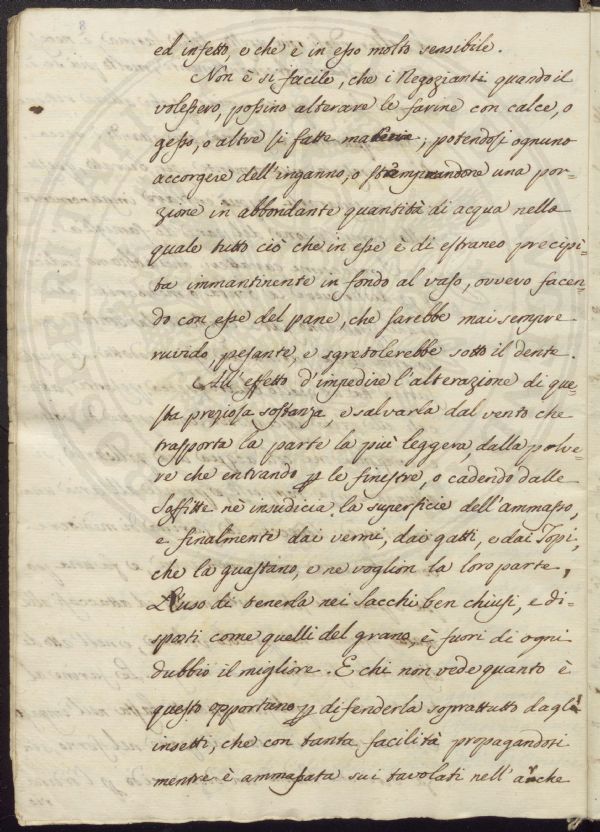 ed infetto, e che è in esso molto sensibile.
Non è sì facile, che i Negozianti quando il
volessero, possino alterare le farine con calce, o
gesso, o altre sì fatte materie, potendosi ognuno
accorgere dell'inganno, o stemprandone una por-
zione in abbondante quantità di acqua nella
quale tutto ciò che in esse è di estraneo precipi-
ta immantinente in fondo al vaso, ovvero facen-
do con esse del pane, che sarebbe mai sempre
ruvido, pesante, e sgretolerebbe sotto il dente.
All'effetto d'impedire l'alterazione di que-
sta preziosa sostanza, e salvarla dal vento che
trasporta la parte la più leggera, dalla polve-
re che entrando p le finestre, o cadendo dalle
soffitte nè insudicia la superficie dell'ammasso,
e finalmente dai vermi, dai gatti, e dai Topi,
che la guastano, e ne voglion la loro parte,
L'uso di tenerla nei sacchi ben chiusi, e di-
sposti come quelli del grano, è fuori di ogni
dubbio il migliore. E chi non vede quanto è
questo opportuno p difenderla soprattutto dagl'
insetti, che con tanta facilità propagandosi
mentre è ammassata sui tavolati nell'arche